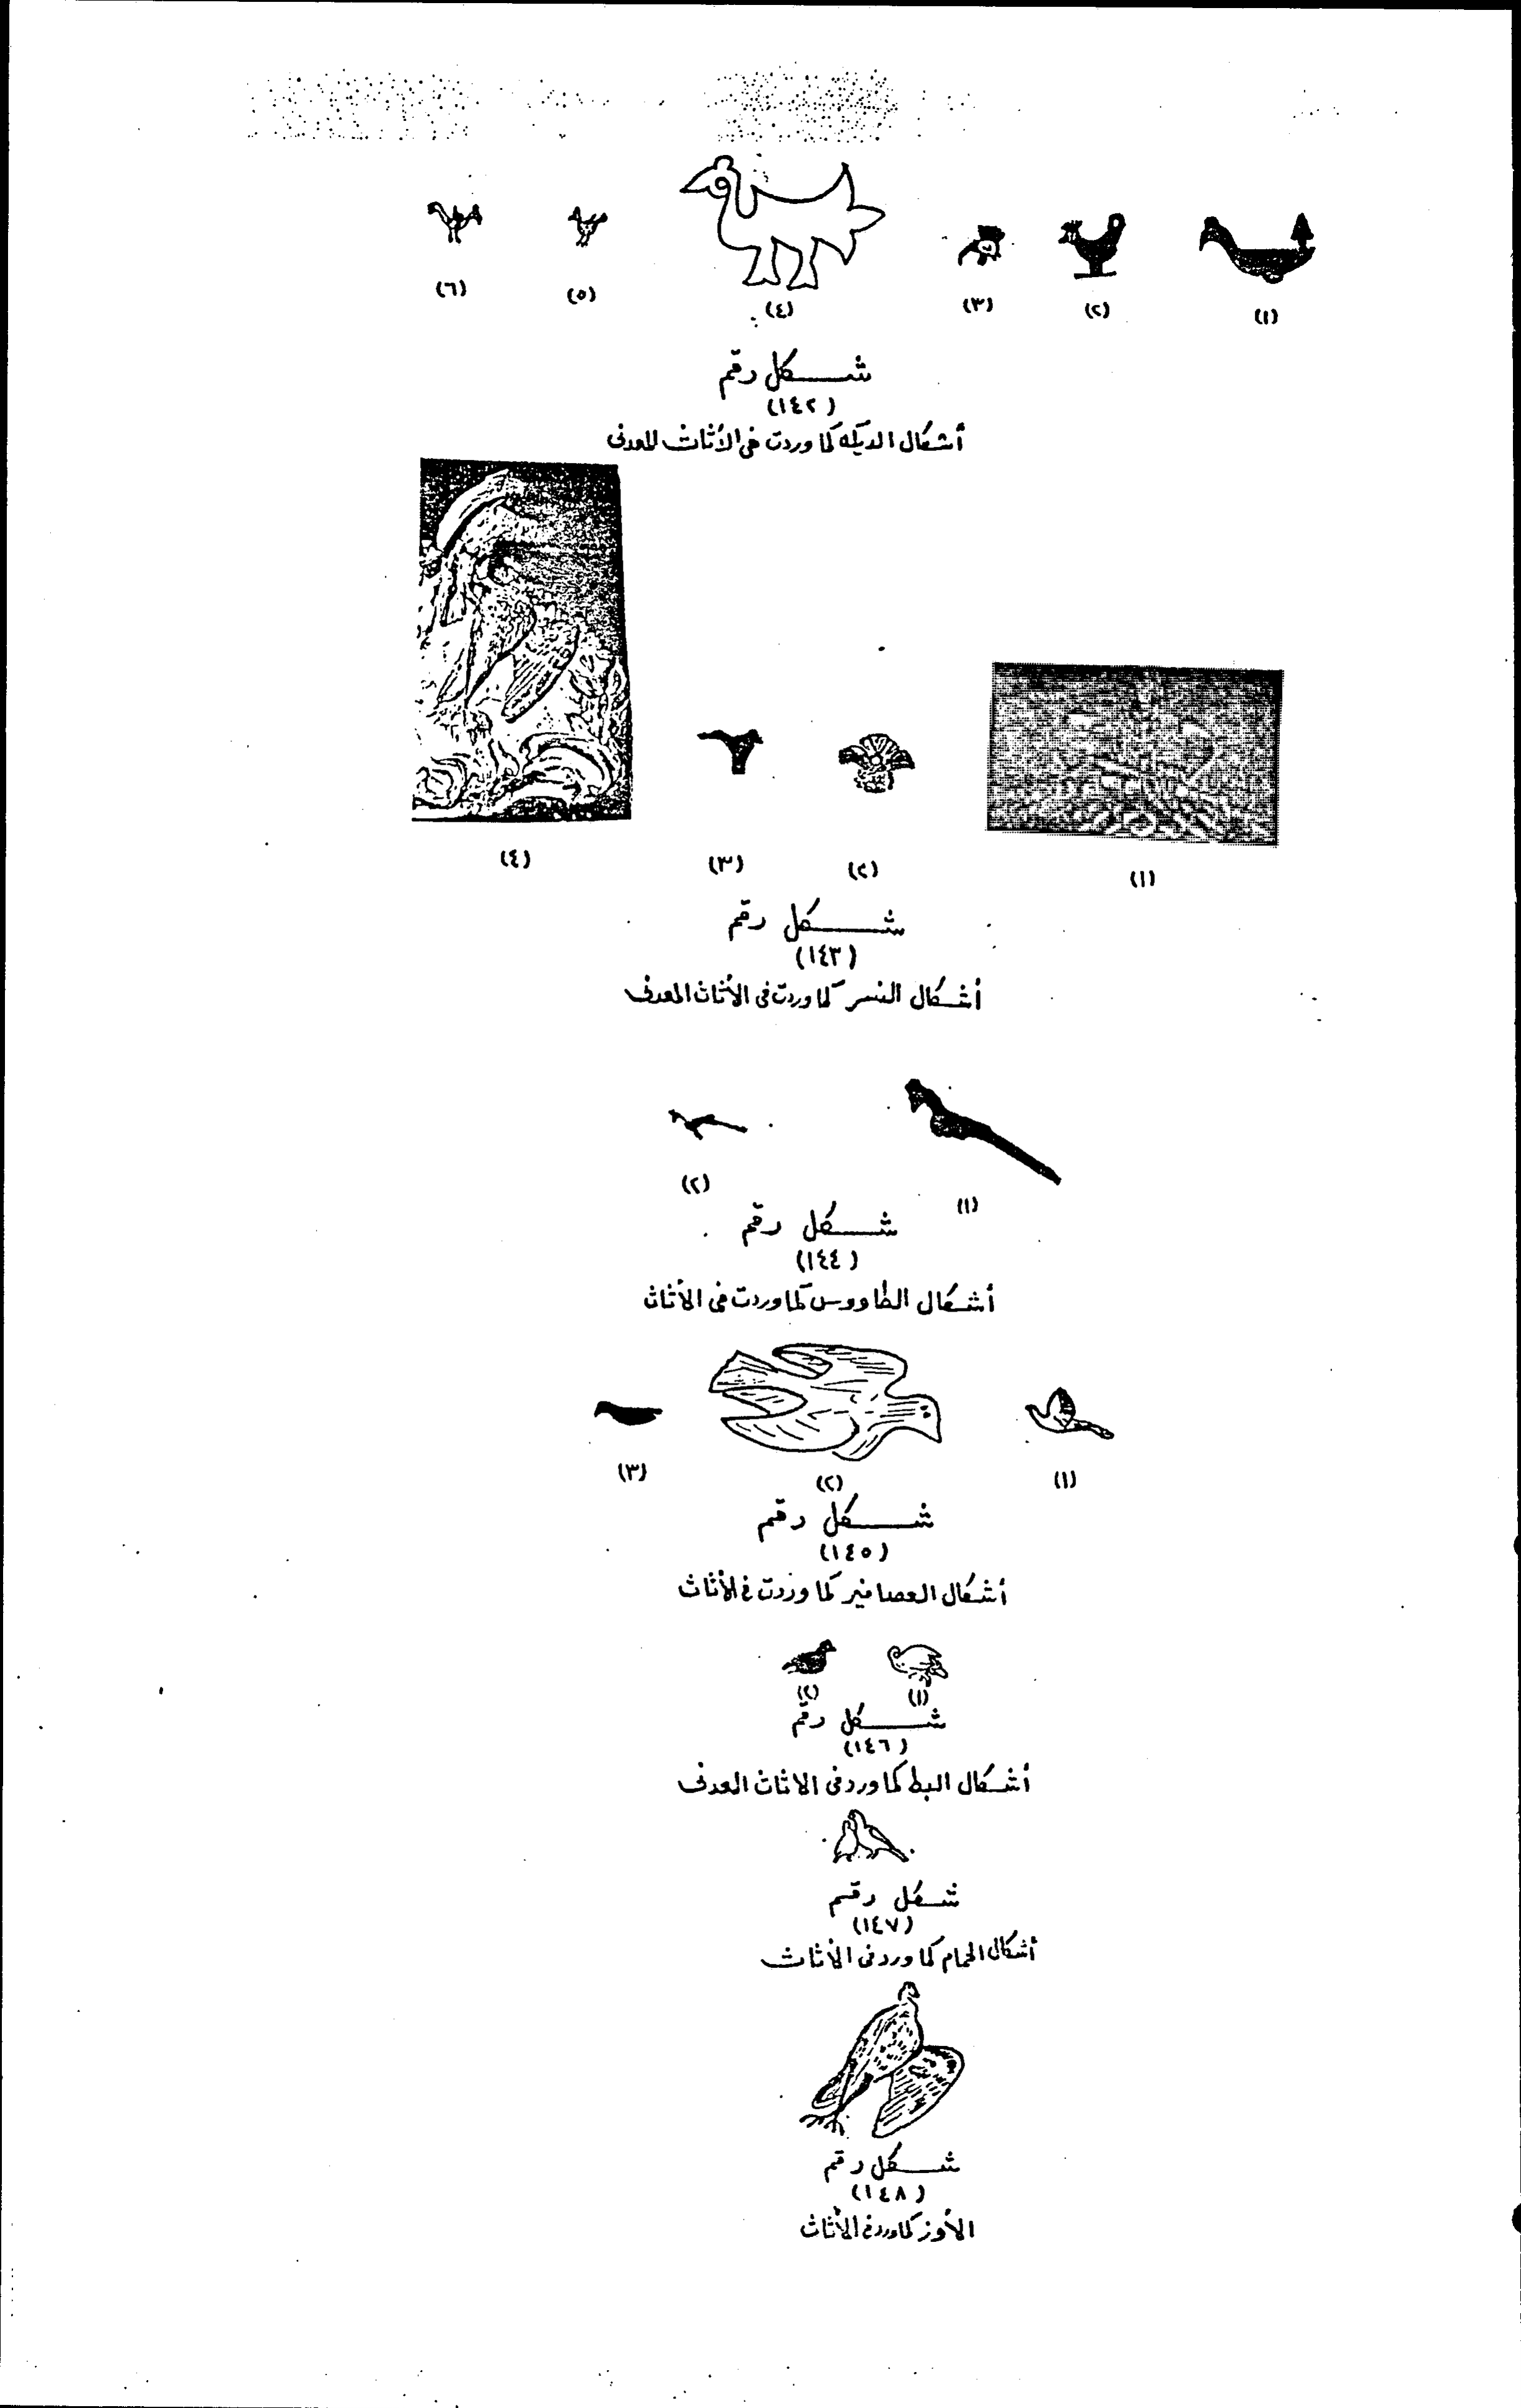 (١) (٢) (٣) (٤) (٥) (٦)
شكل رقم
(١٤٢)
أشكال الديكه كما وردت فى الأثاث المعدنى
(١) (٢) (٣) (٤)
شكل رقم
(١٤٣)
أشكال النسر كما وردت فى الأثاث المعدنى
(١) (٢)
شكل رقم
(١٤٤)
أشكال الطاووس كما وردت فى الأثاث
(١) (٢) (٣)
شكل رقم
(١٤٥)
أشكال العصافير كما وردت فى الأثاث
(١) (٢)
شكل رقم
(١٤٦)
أشكال البط كما ورد فى الاثاث المعدنى
شكل رقم
(١٤٧)
أشكال الحمام كما ورد فى الأثاث
شكل رقم
(١٤٨)
الأوز كما ورد فى الأثاث